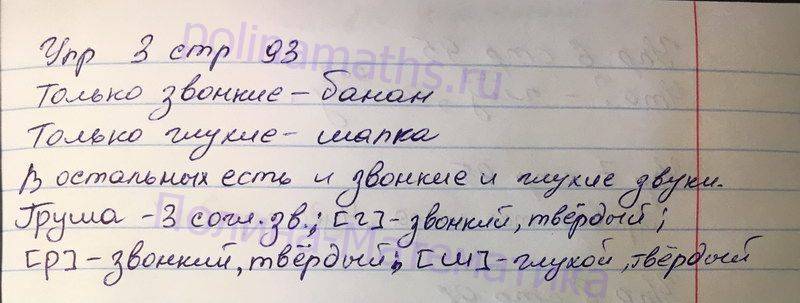 Упр 3 стр 93
Только звонкие - банан
Только глухие - шапка
В остальных есть и звонкие и глухие звуки.
Груша - 3 согл. зв.; [г] - звонкий, твёрдый;
[р] - звонкий, твёрдый; [ш] - глухой, твёрдый
polinamaths.ru
Полина-Математика